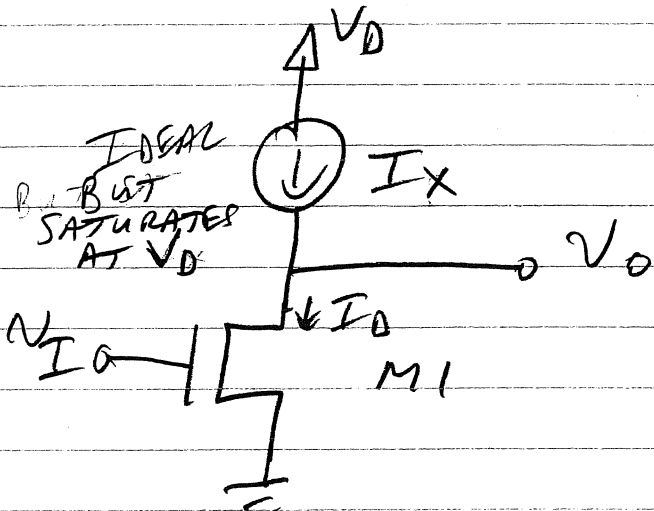 V_D
IDEAL
BUT
SATURATES
AT V_D
I_X
v_O
I_D
v_I
M1